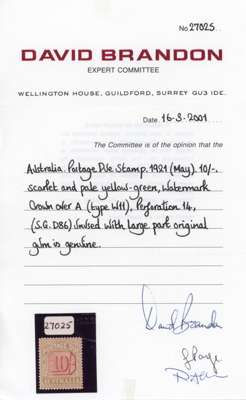 No 27025
DAVID BRANDON
EXPERT COMMITTEE
WELLINGTON HOUSE, GUILDFORD, SURREY GU3 IDE.
Date 16-3-2001
The Committee is of the opinion that the
Australia. Postage Due Stamp. 1921 (May). 10/-.
scarlet and pale yellow-green, Watermark
Crown over A (type W11), Perforation 14,
(S.G. D86) Unused with large part original
gum is genuine.
David Brandon
27025
10/-